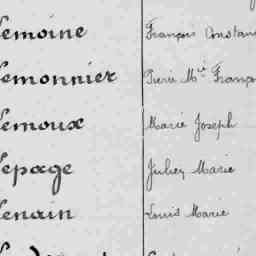 Lemoine François Constant
Lemonnier Pierre Mie Franço
Lemoux Marie Joseph
Lepage Julien Marie
Lenain Louis Marie